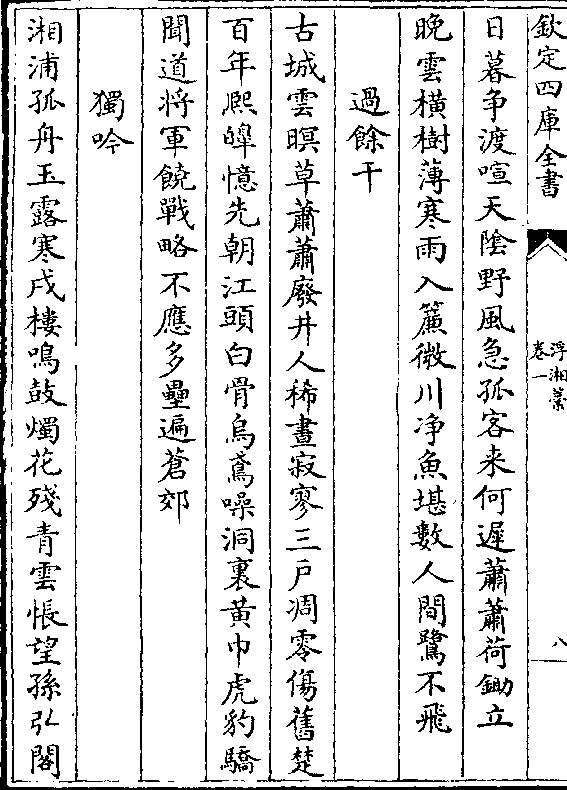 欽定四庫全書
浮湘藁
卷一
八
日暮争渡喧天隂野風急孤客来何遲蕭蕭荷鋤立
晚雲横樹薄寒雨入簾微川净魚堪數人閒鷺不飛
過餘干
古城雲暝草蕭蕭廢井人稀晝寂寥三戸凋零傷舊楚
百年熈皡憶先朝江頭白骨烏鳶噪洞裏黄巾虎豹驕
聞道將軍饒戰略不應多壘遍蒼郊
獨吟
湘浦孤舟玉露寒戍樓鳴鼓燭花殘青雲悵望孫弘閣